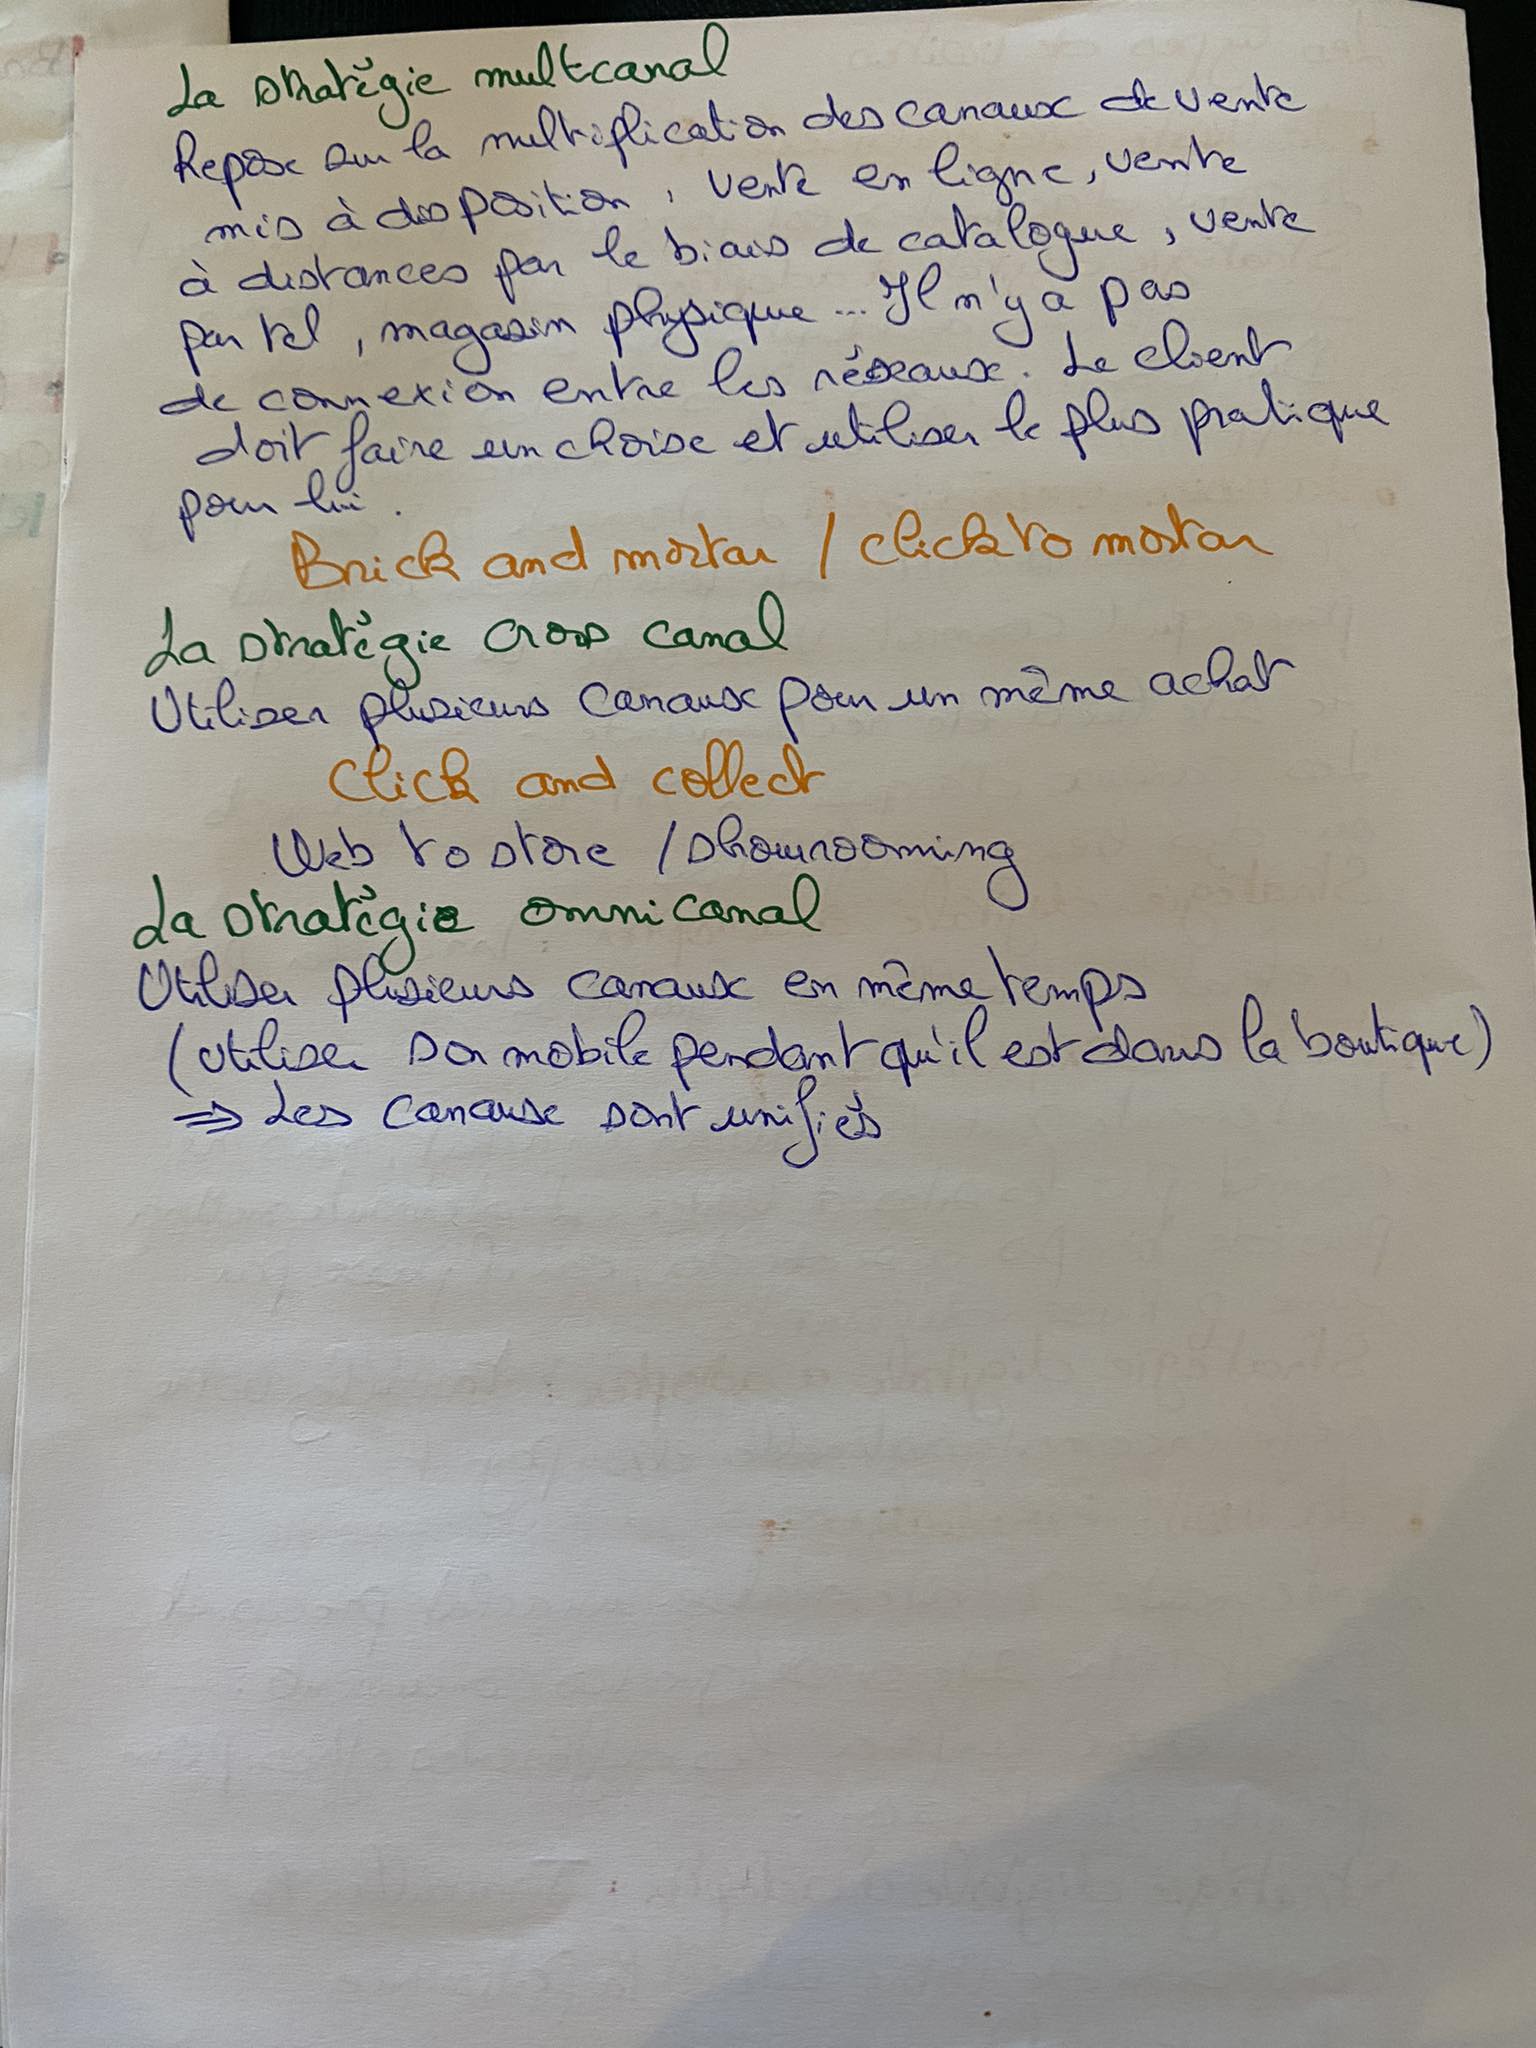 La stratégie multcanal
Repose sur la multiplication des canaux de vente
mis à disposition, vente en ligne, vente
à distances par le biais de catalogue, vente
par tel, magasin physique... Il n'y a pas
de connexion entre les réseaux. Le client
doit faire un choise et utiliser le plus pratique
pour lui.
Brick and mortar / click to mortar
La stratégie cross canal
Utiliser plusieurs canaux pour un même achat
Click and collect
Web to store / showrooming
La stratégie omnicanal
Utiliser plusieurs canaux en même temps
(utiliser son mobile pendant qu'il est dans la boutique)
⇒ Les canaux sont unifiés